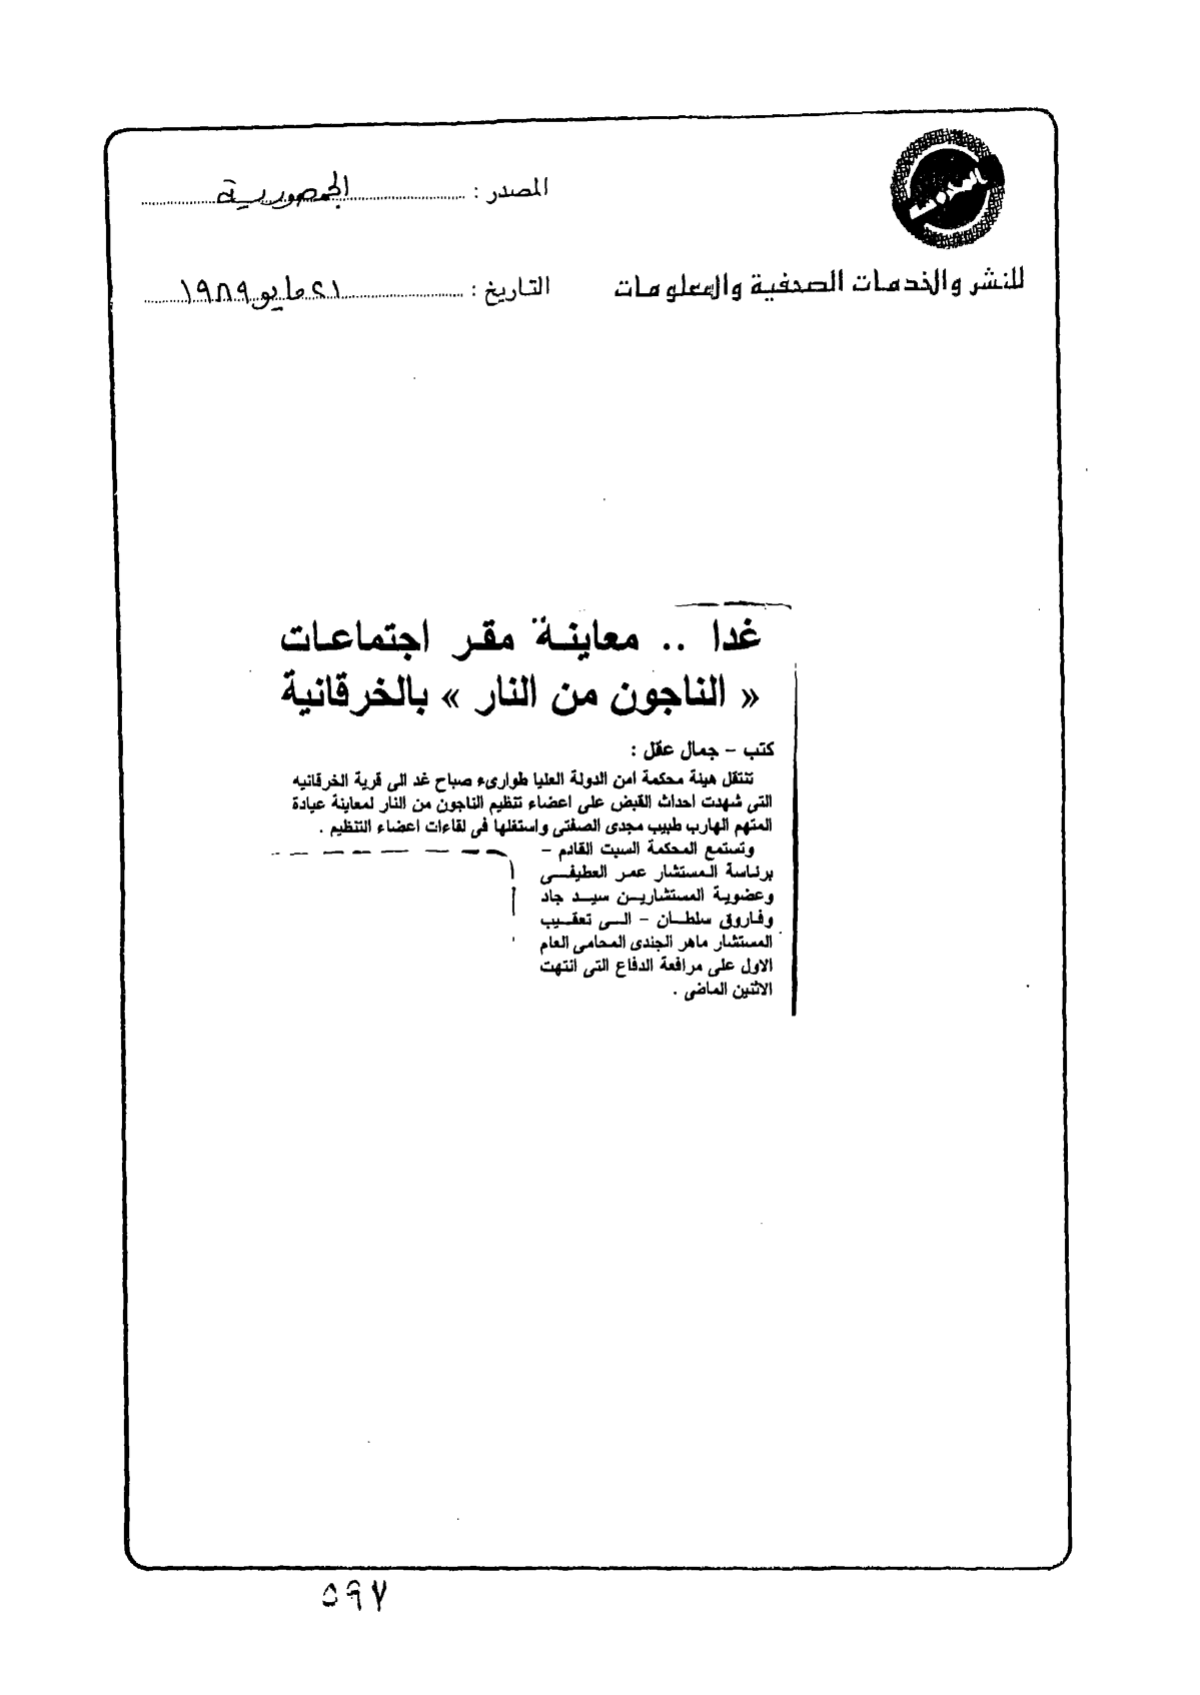 المصدر : الجمهورية
للنشر والخدمات الصحفية والمعلومات
التاريخ : ٢١ مايو ١٩٨٩
غدا .. معاينة مقر اجتماعات
« الناجون من النار » بالخرقانية
كتب – جمال عقل :
تنتقل هيئة محكمة امن الدولة العليا طوارىء صباح غد الى قرية الخرقانيه
التى شهدت احداث القبض على اعضاء تنظيم الناجون من النار لمعاينة عيادة
المتهم الهارب طبيب مجدى الصفتى واستغلها فى لقاءات اعضاء التنظيم .
وتستمع المحكمة السبت القادم –
برئاسة المستشار عمر العطيفى
وعضوية المستشارين سيد جاد
وفاروق سلطان – الى تعقيب
المستشار ماهر الجندى المحامى العام
الاول على مرافعة الدفاع التى انتهت
الاثنين الماضى .
٥٩٧